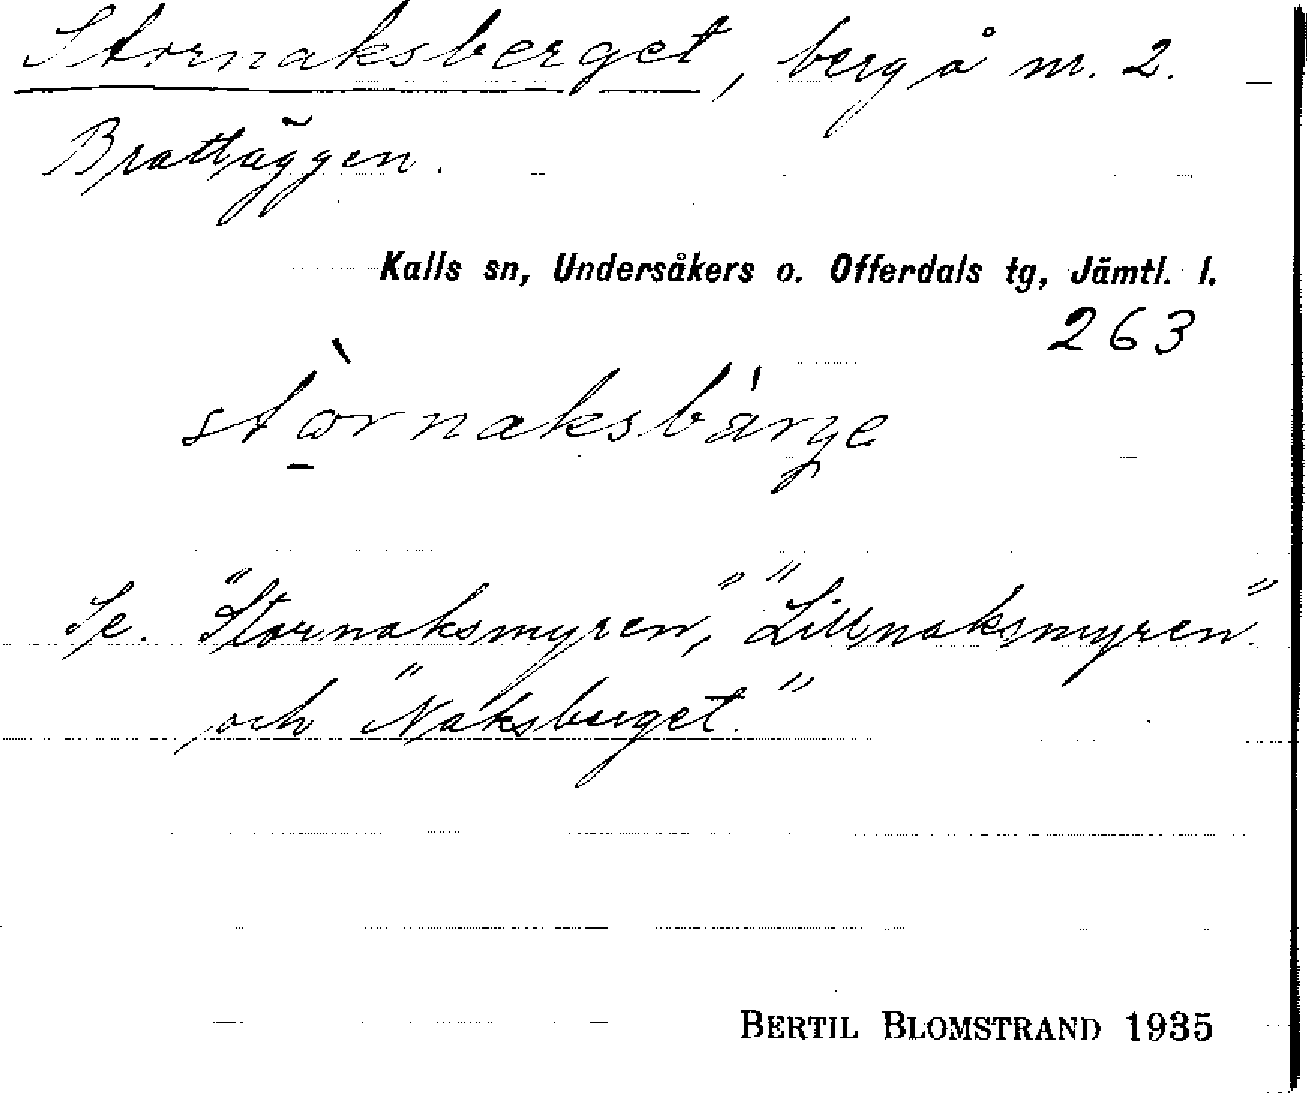 Stornaksberget, berg å nr. 2.
Brattäggen.
Kalls sn, Undersåkers o. Offerdals tg, Jämtl. l.
263
stòrnaksbärge
Se. "Stornaksmyren", "Lillnaksmyren"
och "Naksberget."
BERTIL BLOMSTRAND 1935